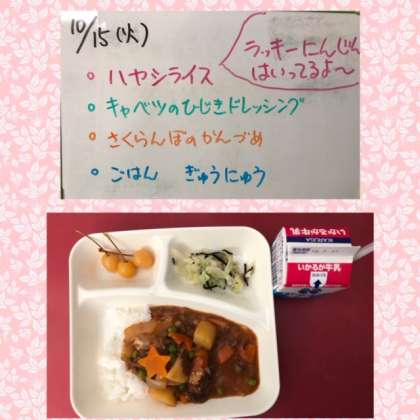 10/15(火)
ラッキーにんじん
はいってるよ〜
ハヤシライス
キャベツのひじきドレッシング
さくらんぼのかんづめ
ごはん ぎゅうにゅう
いかるが牛乳
IKARUGA
いかるが牛乳